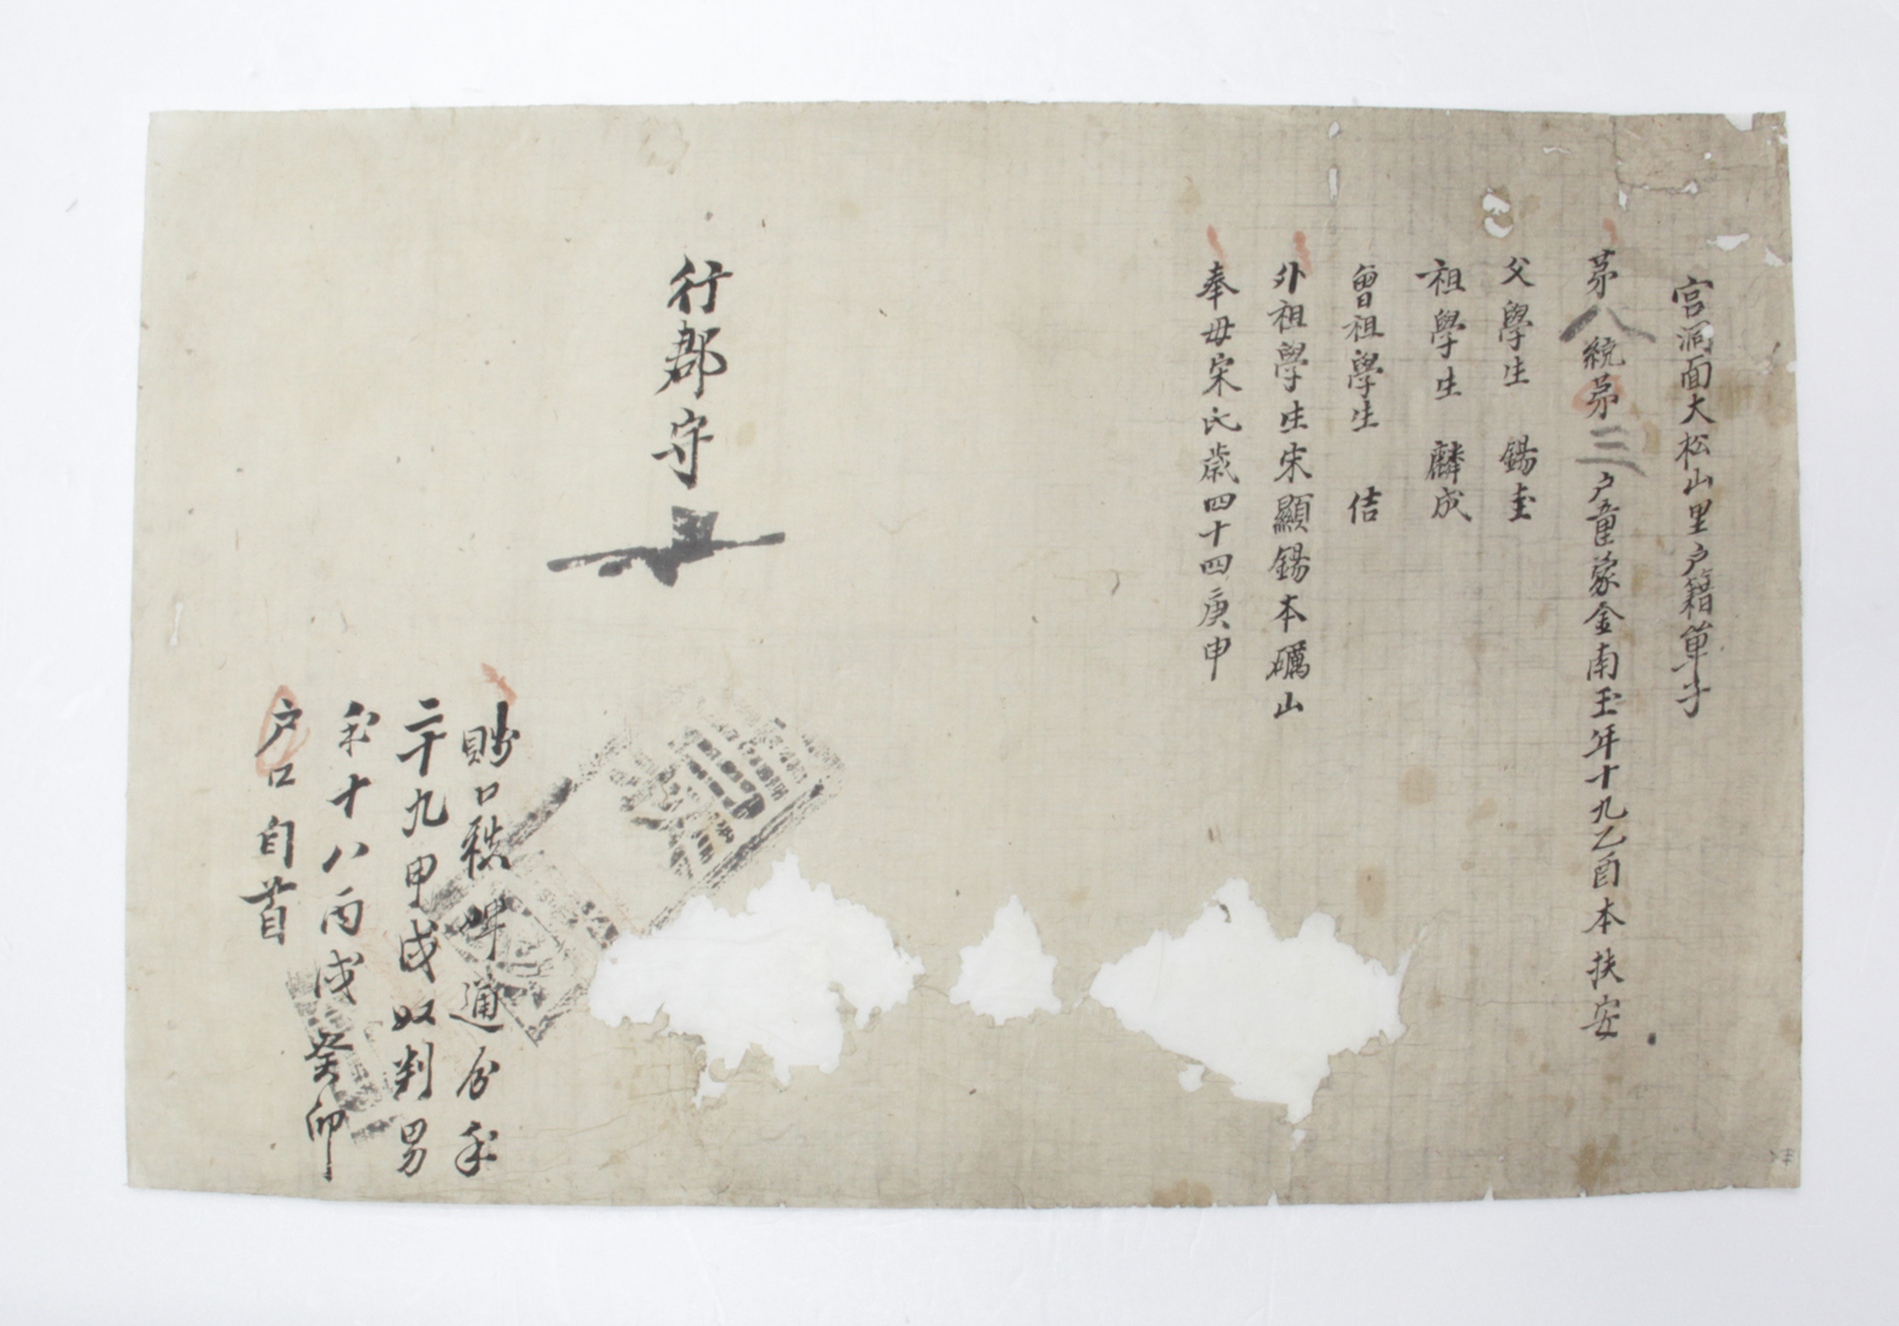 宮洞面大松山里戶籍單子
苐八統苐三戶童蒙金南玉年十九乙酉本扶安
父學生 錫圭
祖學生 麟成
曾祖學生 佶
外祖學生宋顯錫本礪山
奉母宋氏歲四十四庚申
行郡守
口秩婢通分年
二十九甲戌奴判男
年十八丙戌癸卯
戶口自首